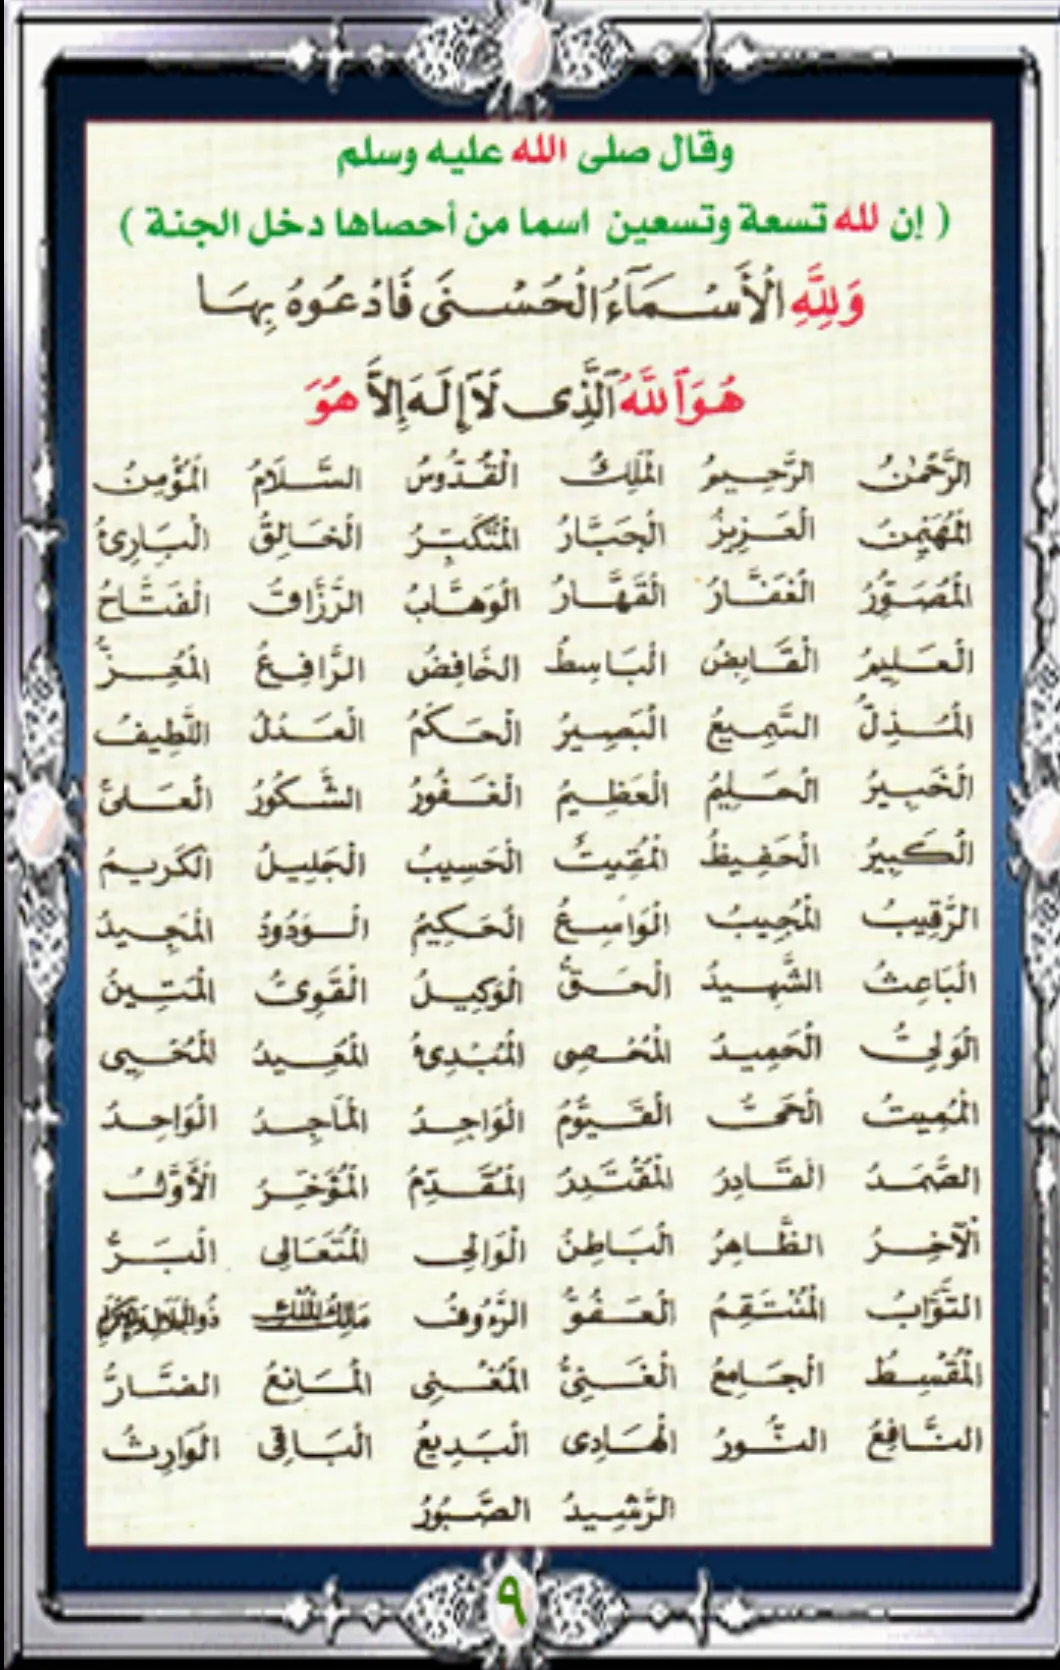 وقال صلى الله عليه وسلم
( إن لله تسعة وتسعين اسما من أحصاها دخل الجنة )
وَلِلَّهِ الْأَسْمَآءُ الْحُسْنَى فَادْعُوهُ بِهَا
هُوَ ٱللَّهُ ٱلَّذِى لَآ إِلَهَ إِلاَّ هُوَ
الرَّحْمٰنُ الرَّحِيمُ الْمَلِكُ الْقُدُّوسُ السَّلَامُ الْمُؤْمِنُ
الْمُهَيْمِنُ الْعَزِيزُ الْجَبَّارُ الْمُتَكَبِّرُ الْخَالِقُ الْبَارِئُ
الْمُصَوِّرُ الْغَفَّارُ الْقَهَّارُ الْوَهَّابُ الرَّزَّاقُ الْفَتَّاحُ
الْعَلِيمُ الْقَابِضُ الْبَاسِطُ الْخَافِضُ الرَّافِعُ الْمُعِزُّ
الْمُذِلُّ السَّمِيعُ الْبَصِيرُ الْحَكَمُ الْعَدْلُ اللَّطِيفُ
الْخَبِيرُ الْحَلِيمُ الْعَظِيمُ الْغَفُورُ الشَّكُورُ الْعَلِىُّ
الْكَبِيرُ الْحَفِيظُ الْمُقِيتُ الْحَسِيبُ الْجَلِيلُ الْكَرِيمُ
الرَّقِيبُ الْمُجِيبُ الْوَاسِعُ الْحَكِيمُ الْوَدُودُ الْمَجِيدُ
الْبَاعِثُ الشَّهِيدُ الْحَقُّ الْوَكِيلُ الْقَوِىُّ الْمَتِينُ
الْوَلِىُّ الْحَمِيدُ الْمُحْصِى الْمُبْدِئُ الْمُعِيدُ الْمُحْيِى
الْمُمِيتُ الْحَىُّ الْقَيُّومُ الْوَاجِدُ الْمَاجِدُ الْوَاحِدُ
الصَّمَدُ الْقَادِرُ الْمُقْتَدِرُ الْمُقَدِّمُ الْمُؤَخِّرُ الْأَوَّلُ
الْآخِرُ الظَّاهِرُ الْبَاطِنُ الْوَالِى الْمُتَعَالِى الْبَرُّ
التَّوَّابُ الْمُنْتَقِمُ الْعَفُوُّ الرَّءُوفُ مَالِكُ الْمُلْكِ ذُو الْجَلَالِ وَالْإِكْرَامِ
الْمُقْسِطُ الْجَامِعُ الْغَنِىُّ الْمُغْنِى الْمَانِعُ الضَّارُّ
النَّافِعُ النُّورُ الْهَادِى الْبَدِيعُ الْبَاقِى الْوَارِثُ
الرَّشِيدُ الصَّبُورُ
٩